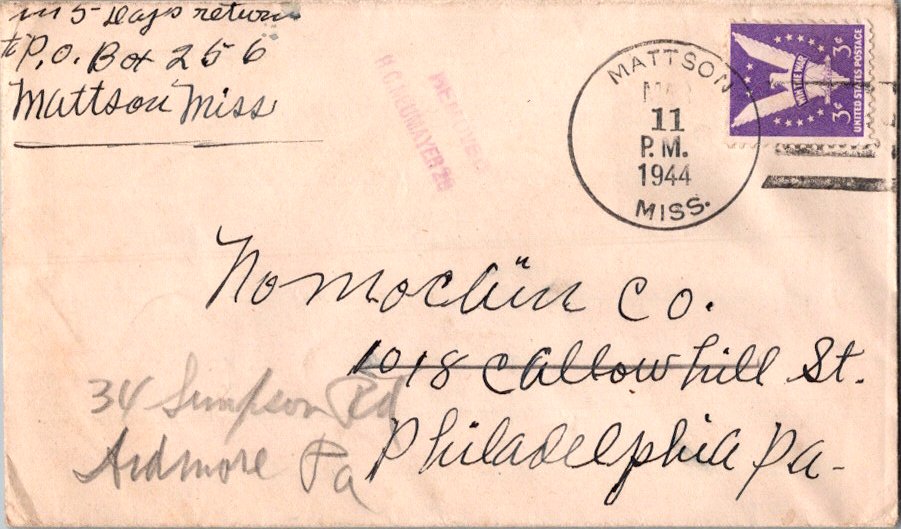 in 5 days return
to P.O. Box 256
Mattson Miss
MATTSON
11
P.M.
1944
MISS.
WIN THE WAR
3¢ 3¢
UNITED STATES POSTAGE
Co.
1018 Callowhill St.
Philadelphia Pa-
34 Simpson Rd
Ardmore Pa